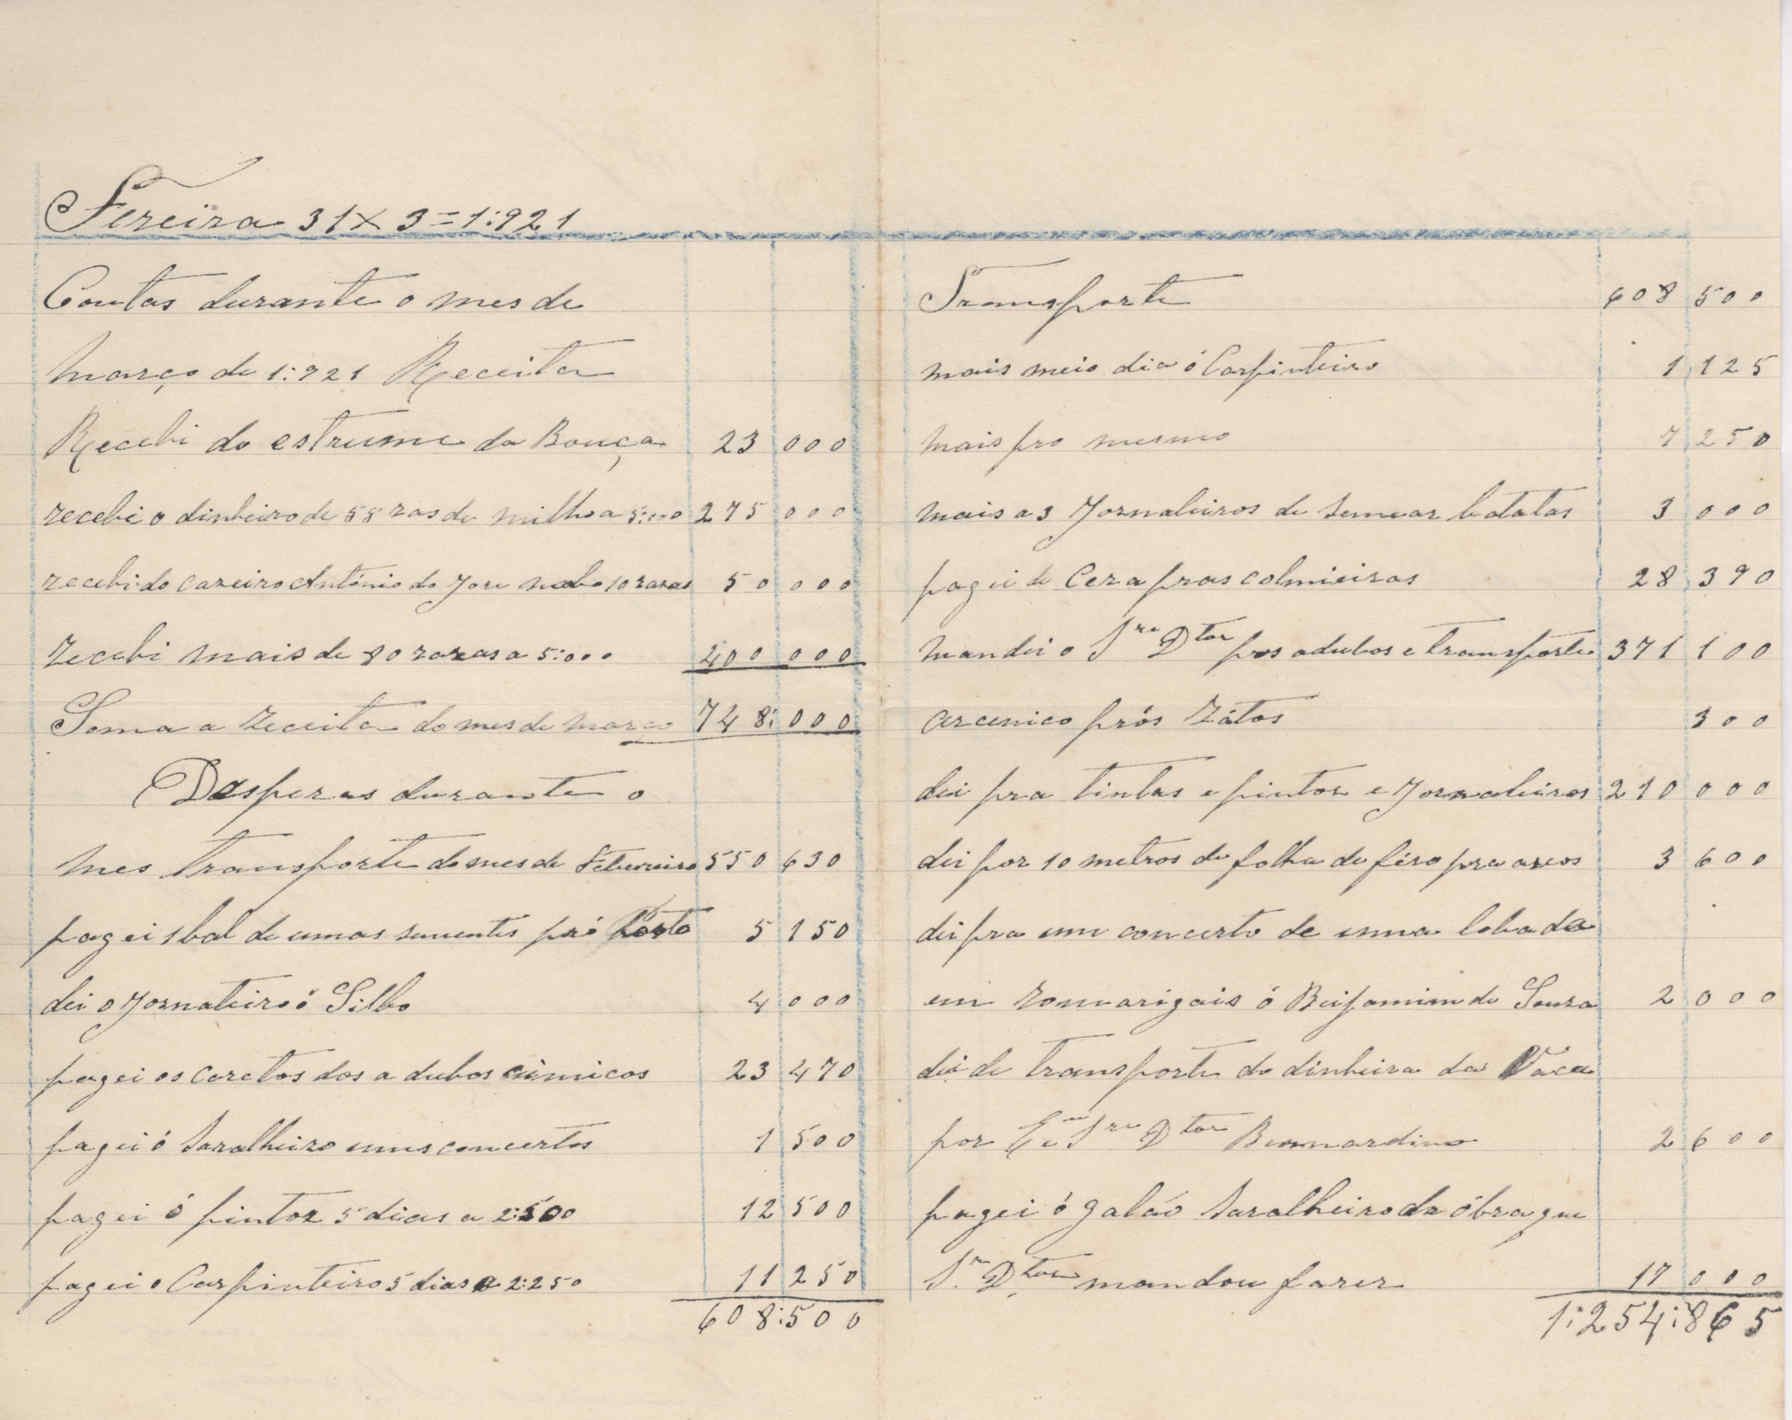 Fereira 31 x 3 = 1:921
Contas durante o mes de
Março de 1:921 Receita
Recebi do estrume da Bouça 23 000
recebi o dinheiro de 55 ras de milho a 5:000 275 000
recebi do cazeiro António do Jose nabo 10 razas 50 000
recebi mais de 80 razas a 5:000 400 000
Soma a receita do mes de março 748:000
Despezas durante o
mes transporte do mes de Febereiro 550 630
pagei 1 bal de umas sementes pró Porto 5 150
dei o Jornaleiro ó Silbo 4 000
pagei os caretos dos adubos cimicos 23 470
pagei ó saralheiro uns concertos 1 500
pagei ó pintor 5 dias a 2:500 12 500
pagei o Carpinteiro 5 dias a 2:250 11 250
608:500
Transporte 608 500
mais meio dia ó Carpinteiro 1 125
mais pro mesmo 7 250
mais a 3 Jornaleiros de semear batatas 3 000
pagei de Cera pras colmieiras 28 390
mandei o Snr Dtor pros adubos e transporte 371 100
arcenico prós rátos 300
dei pra tintas e pintor e Jornaleiros 210 000
dei por 10 metros de folha de féro pra arcos 3 600
dei pra um concerto de uma lebada
em Romarigais ó Beijamim de Souza 2 000
dei de transporte do dinheiro da Vaca
por Snr Dtor Bernnardino 2 600
pagei ó galáo saralheiro da óbra que
Snr Dtor mandou fazer 17 000
1:254:865